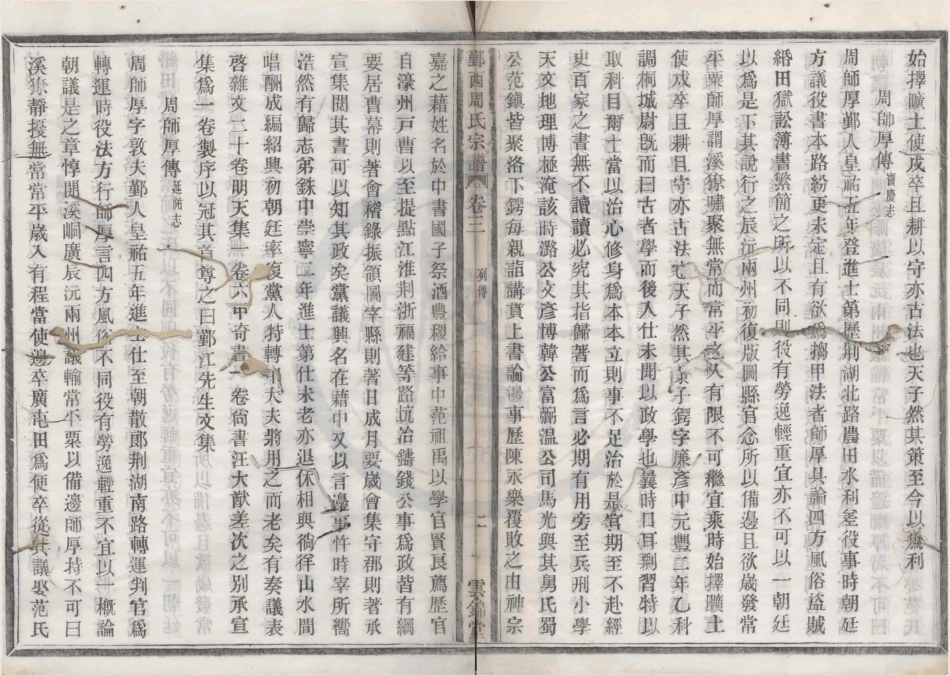 始擇曠土使戍卒且耕以守亦古法也天子然其策至今以爲利
周師厚傳 寶慶志
周師厚鄞人皇祐五年登進士第歷荆湖北路農田水利差役事時朝廷
方議役書本路紛更未定且有欲爲搊甲法者師厚具論四方風俗盜賊
緡田獄訟簿書繁簡之所以不同則役有勞逸輕重宜亦不可以一朝廷
以爲是下其說行之辰沅兩州初復版圖縣官念所以備邊且欲歲發常
平粟師厚謂溪獠嘯聚無常而常平之入有限不可繼宜乘時始擇曠土
使戍卒且耕且守亦古法也天子然其策子鍔字廉彥中元豐二年乙科
調桐城尉旣而曰古者學而後入仕未聞以政學也曩時口耳剽習特以
取科目爾士當以治心修身爲本本立則事不足治於是官期至不赴經
史百家之書無不讀讀必究其指歸著而爲言必期有用旁至兵刑小學
天文地理博極淹該時潞公文彥博韓公富弼溫公司馬光與其舅氏蜀
公范鎭皆聚洛下鍔每親詣講貫上書論邊事歷陳永樂覆敗之由神宗
鄞西周氏宗譜 卷二 列傳 二 雲錦堂
嘉之藉姓名於中書國子祭酒豐稷給事中范祖禹以學官賢良薦歷官
自濠州戸曹以至提點江淮荆浙福建等路坑冶鑄錢公事爲政皆有綱
要居曹幕則著會稽錄振領圖宰縣則著日成月要歲會集守郡則著承
宣集聞其書可以知其政矣黨議興名在藉中又以言邊事忤時宰所襴
浩然有歸志弟銖中崇寧二年進士第仕未老亦退休相與徜徉山水間
唱酬成編紹興初朝廷率復黨人特轉朝大夫將用之而老矣有奏議表
啓雜文二十卷明天集一卷六甲奇書一卷尙書汪大猷差次之别承宣
集爲一卷製序以冠其首尊之曰鄞江先生文集
周師厚傳 延祐志
周師厚字敦夫鄞人皇祐五年進士仕至朝散郎荆湖南路轉運判官爲
轉運時役法方行師厚言四方風俗不同役有勞逸輕重不宜以一槪論
朝議是之章惇開溪峒廣辰沅兩州議輸常平粟以備邊師厚持不可曰
溪獠靜擾無常常平歲入有程當使邊卒廣屯田爲便卒從其議娶范氏